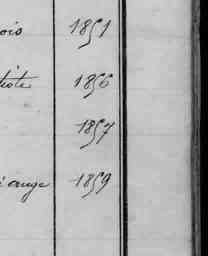 ois 1851
1856
1857
ange 1859